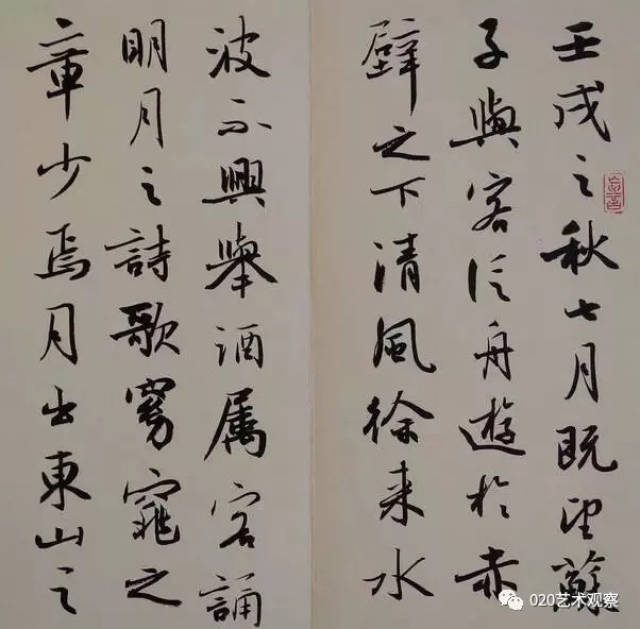 壬戌之秋七月既望蘇
子與客泛舟遊於赤
壁之下清風徐来水
波不興舉酒属客誦
明月之詩歌窈窕之
章少焉月出東山之
020艺术观察